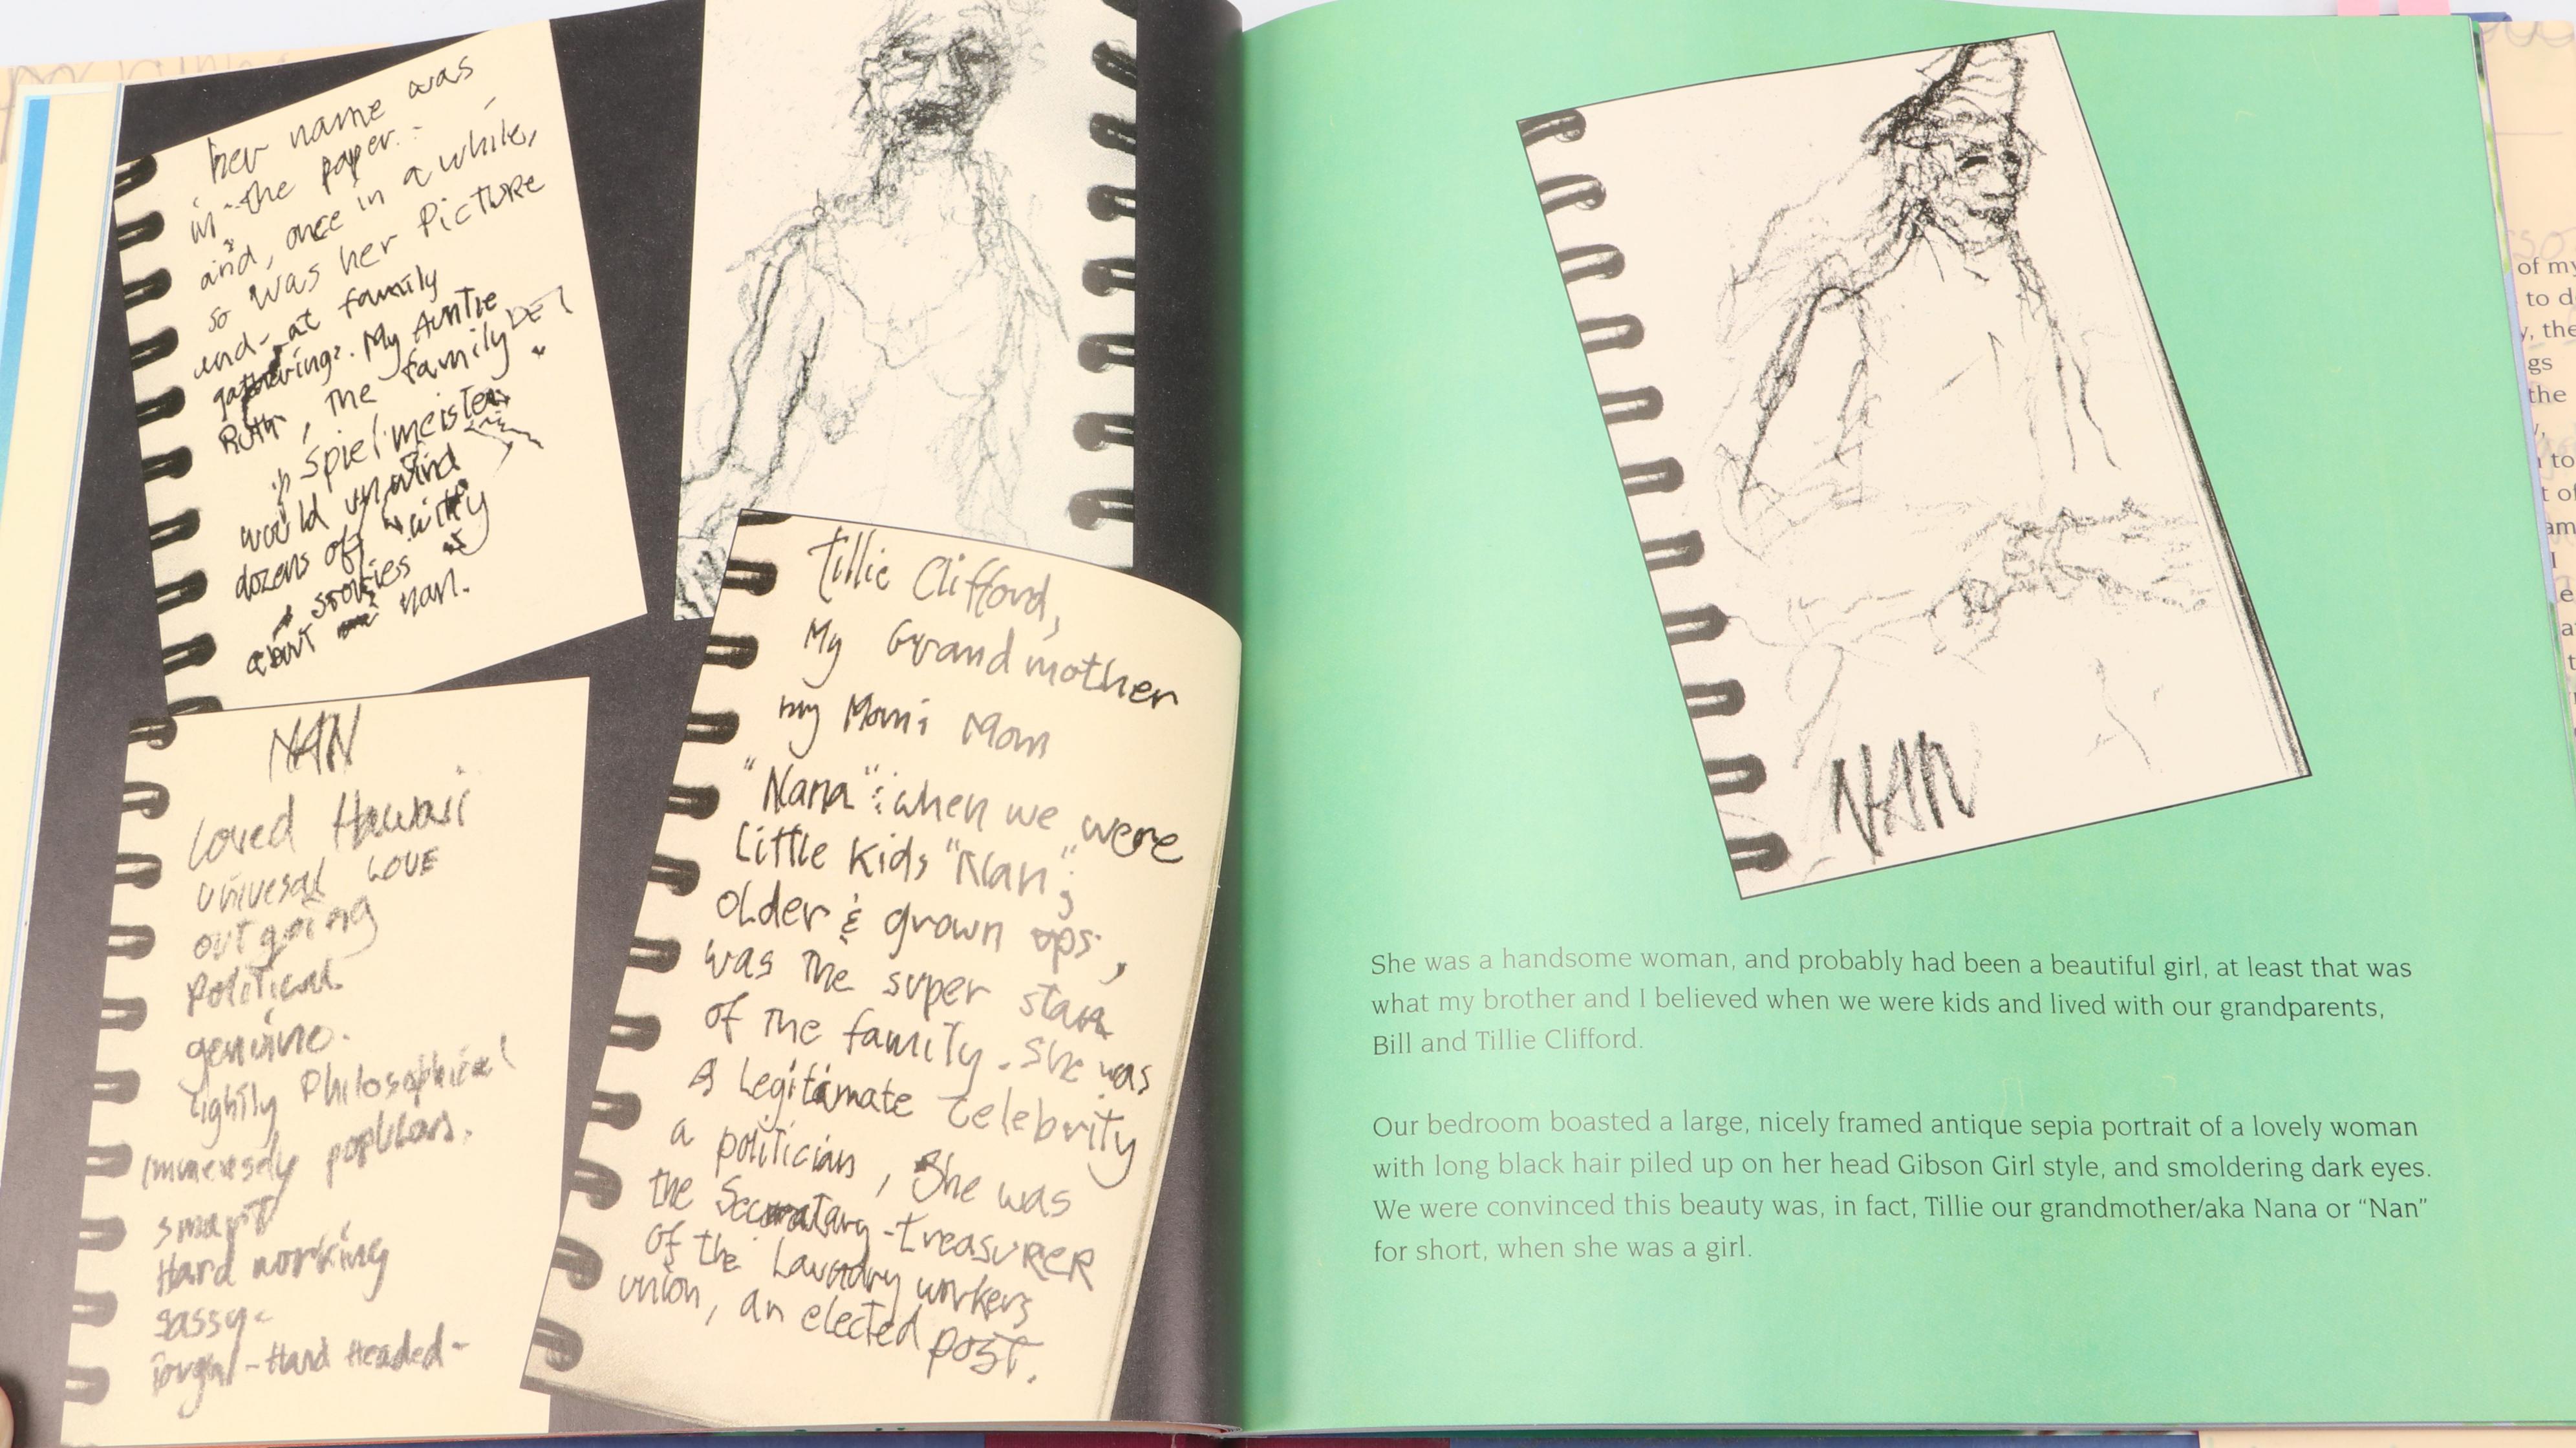 her name was
in the paper..
and, once in a while,
so was her PicTuRe
and at family
gatherings. My AunTie
Ruth, The family
Spielmeister
would unwind
dozens of "witty"
stories
about nan.
NAN
Loved Hawaii
univesal LOVE
outgoing
political
genuine.
Lightly Philosophical
immensely popular.
smart
Hard working
sassy-
Tough - Hard Headed-
Tillie Clifford,
My Grandmother
my Mom's Mom
"Nana": when we were
Little kids "Nan";
older & grown ups,
was The super star
of The family. She was
A Legitimate celebrity
a politician, She was
the Secratary-TreasuRER
of the Laundry workers
union, an elected post.
NAN
She was a handsome woman, and probably had been a beautiful girl, at least that was
what my brother and I believed when we were kids and lived with our grandparents,
Bill and Tillie Clifford.
Our bedroom boasted a large, nicely framed antique sepia portrait of a lovely woman
with long black hair piled up on her head Gibson Girl style, and smoldering dark eyes.
We were convinced this beauty was, in fact, Tillie our grandmother/aka Nana or “Nan”
for short, when she was a girl.
of my
to d
the
gs
the
to